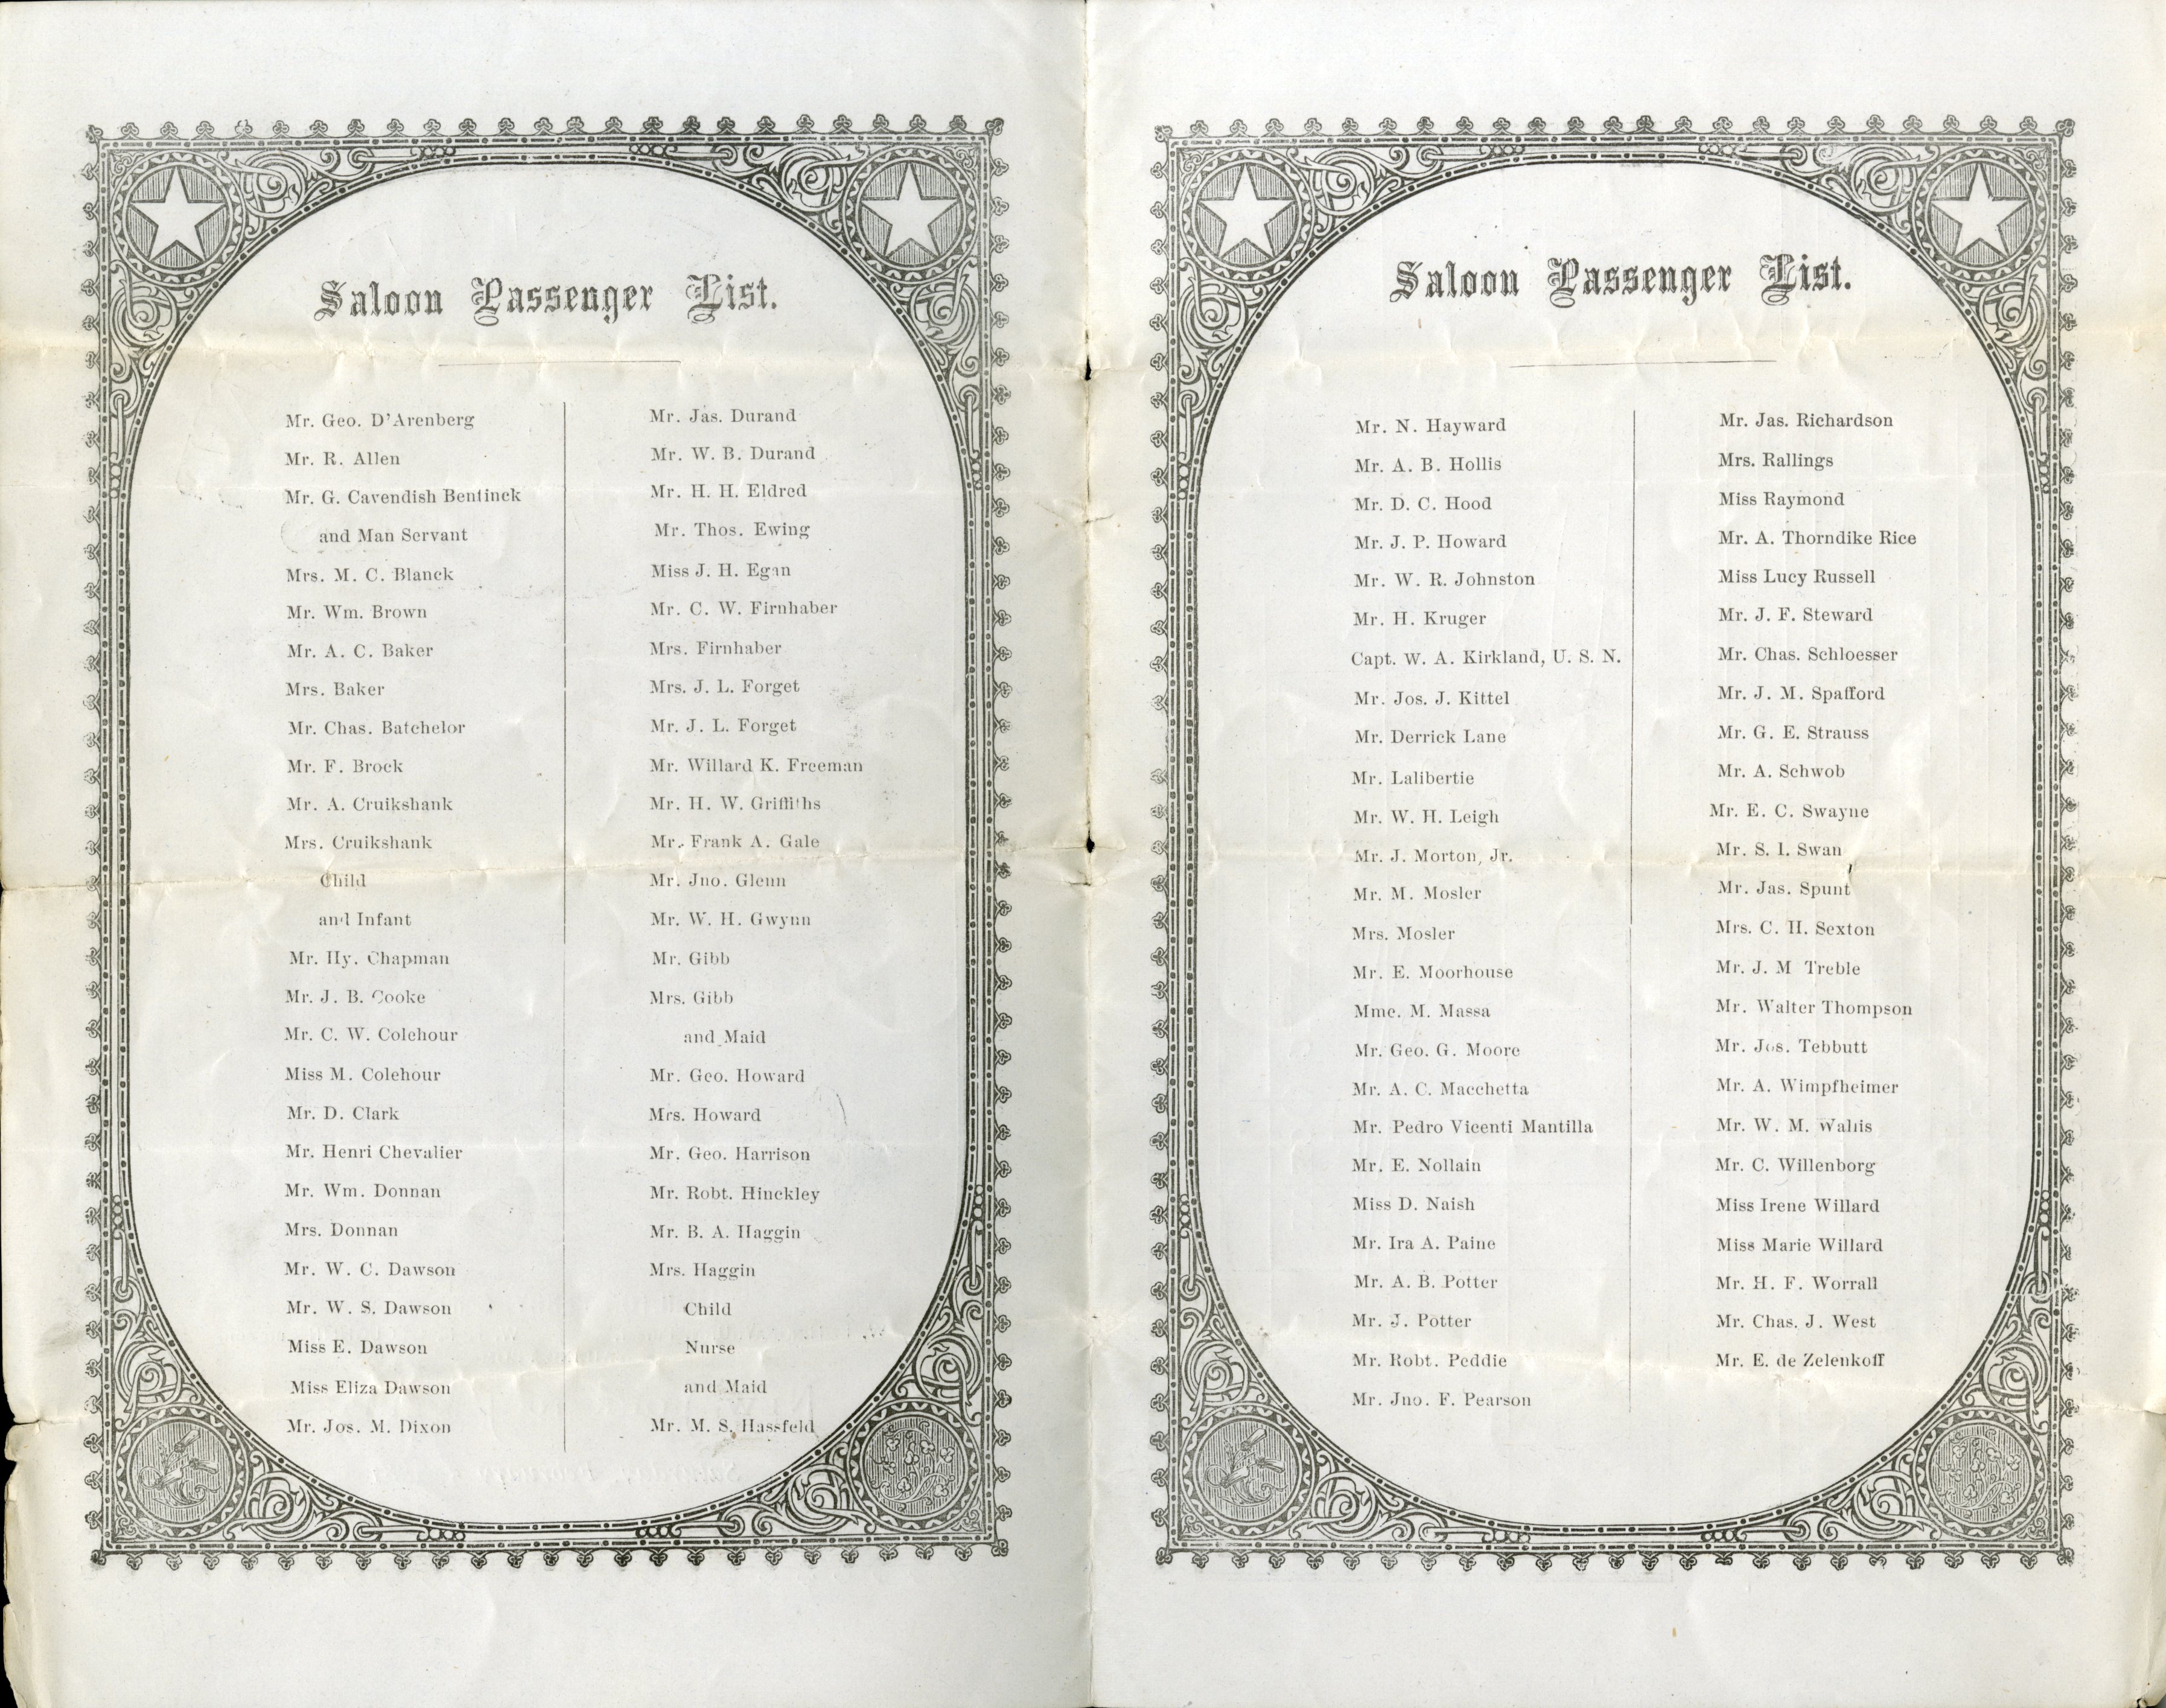 Saloon Passenger List.
Mr. Geo. D'Arenberg
Mr. R. Allen
Mr. G. Cavendish Bentinck
and Man Servant
Mrs. M. C. Blanck
Mr. Wm. Brown
Mr. A. C. Baker
Mrs. Baker
Mr. Chas. Batchelor
Mr. F. Brock
Mr. A. Cruikshank
Mrs. Cruikshank
Child
and Infant
Mr. Hy. Chapman
Mr. J. B. Cooke
Mr. C. W. Colehour
Miss M. Colehour
Mr. D. Clark
Mr. Henri Chevalier
Mr. Wm. Donnan
Mrs. Donnan
Mr. W. C. Dawson
Mr. W. S. Dawson
Miss E. Dawson
Miss Eliza Dawson
Mr. Jos. M. Dixon
Mr. Jas. Durand
Mr. W. B. Durand
Mr. H. H. Eldred
Mr. Thos. Ewing
Miss J. H. Egan
Mr. C. W. Firnhaber
Mrs. Firnhaber
Mrs. J. L. Forget
Mr. J. L. Forget
Mr. Willard K. Freeman
Mr. H. W. Griffiths
Mr. Frank A. Gale
Mr. Jno. Glenn
Mr. W. H. Gwynn
Mr. Gibb
Mrs. Gibb
and Maid
Mr. Geo. Howard
Mrs. Howard
Mr. Geo. Harrison
Mr. Robt. Hinckley
Mr. B. A. Haggin
Mrs. Haggin
Child
Nurse
and Maid
Mr. M. S. Hassfeld
Saloon Passenger List.
Mr. N. Hayward
Mr. A. B. Hollis
Mr. D. C. Hood
Mr. J. P. Howard
Mr. W. R. Johnston
Mr. H. Kruger
Capt. W. A. Kirkland, U. S. N.
Mr. Jos. J. Kittel
Mr. Derrick Lane
Mr. Lalibertie
Mr. W. H. Leigh
Mr. J. Morton, Jr.
Mr. M. Mosler
Mrs. Mosler
Mr. E. Moorhouse
Mme. M. Massa
Mr. Geo. G. Moore
Mr. A. C. Macchetta
Mr. Pedro Vicenti Mantilla
Mr. E. Nollain
Miss D. Naish
Mr. Ira A. Paine
Mr. A. B. Potter
Mr. J. Potter
Mr. Robt. Peddie
Mr. Jno. F. Pearson
Mr. Jas. Richardson
Mrs. Rallings
Miss Raymond
Mr. A. Thorndike Rice
Miss Lucy Russell
Mr. J. F. Steward
Mr. Chas. Schloesser
Mr. J. M. Spafford
Mr. G. E. Strauss
Mr. A. Schwob
Mr. E. C. Swayne
Mr. S. I. Swan
Mr. Jas. Spunt
Mrs. C. H. Sexton
Mr. J. M Treble
Mr. Walter Thompson
Mr. Jos. Tebbutt
Mr. A. Wimpfheimer
Mr. W. M. Wallis
Mr. C. Willenborg
Miss Irene Willard
Miss Marie Willard
Mr. H. F. Worrall
Mr. Chas. J. West
Mr. E. de Zelenkoff